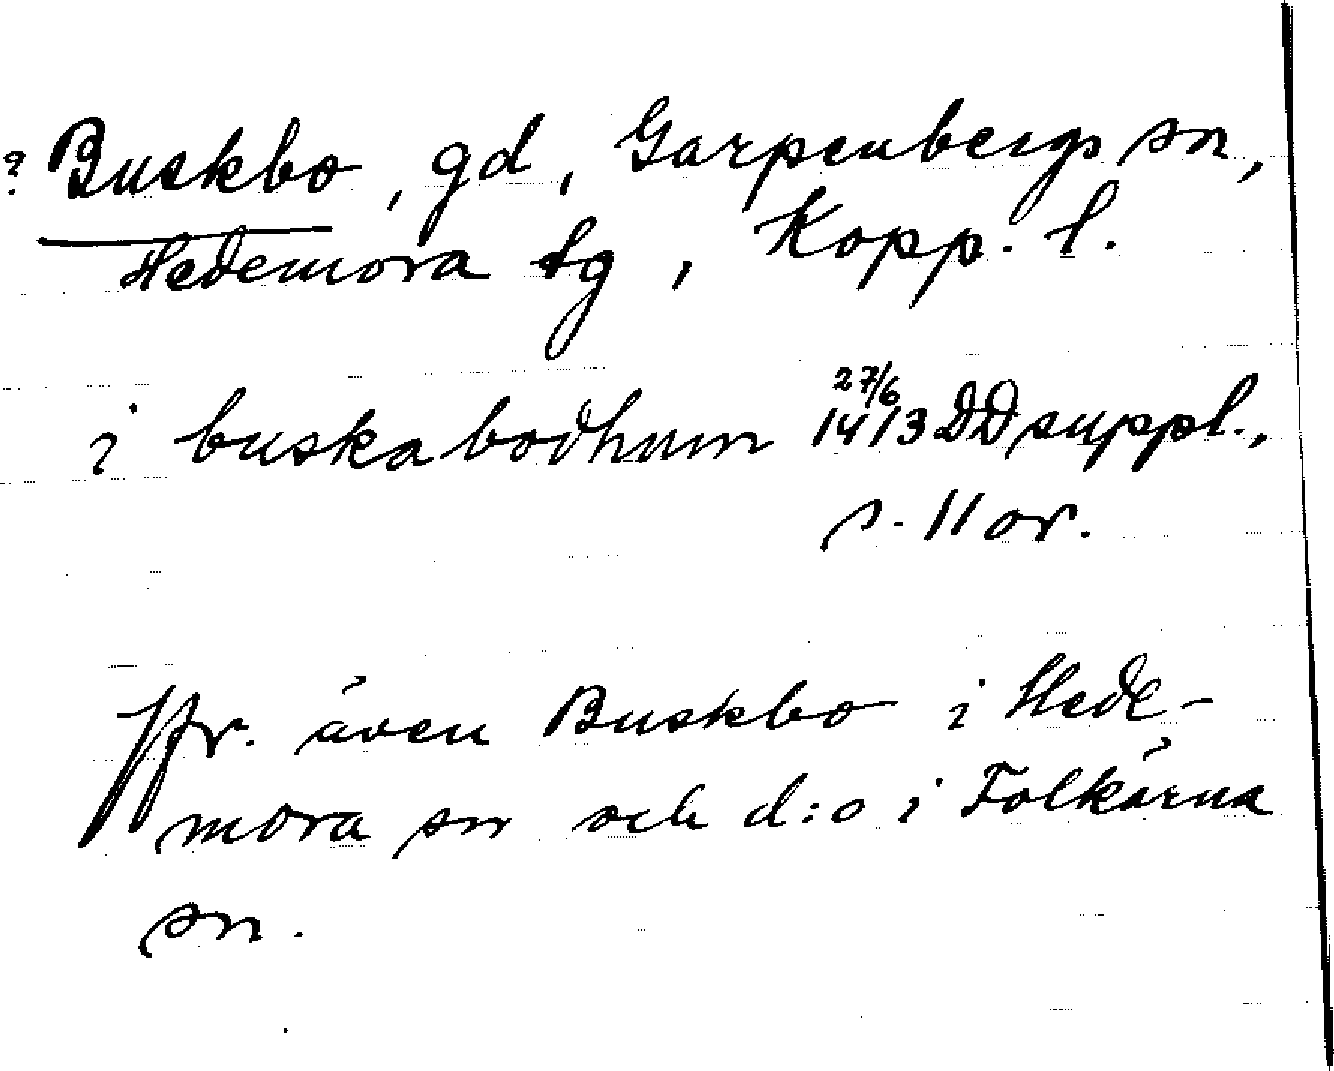 ? Buskbo, gd, Garpenbergs sn,
Hedemora tg, Kopp. l.
i buskabodhum 27/6 1413 DD suppl.,
s. 11 or.
Jfr. även Buskbo i Hede-
mora sn och d:o i Folkärna
sn.